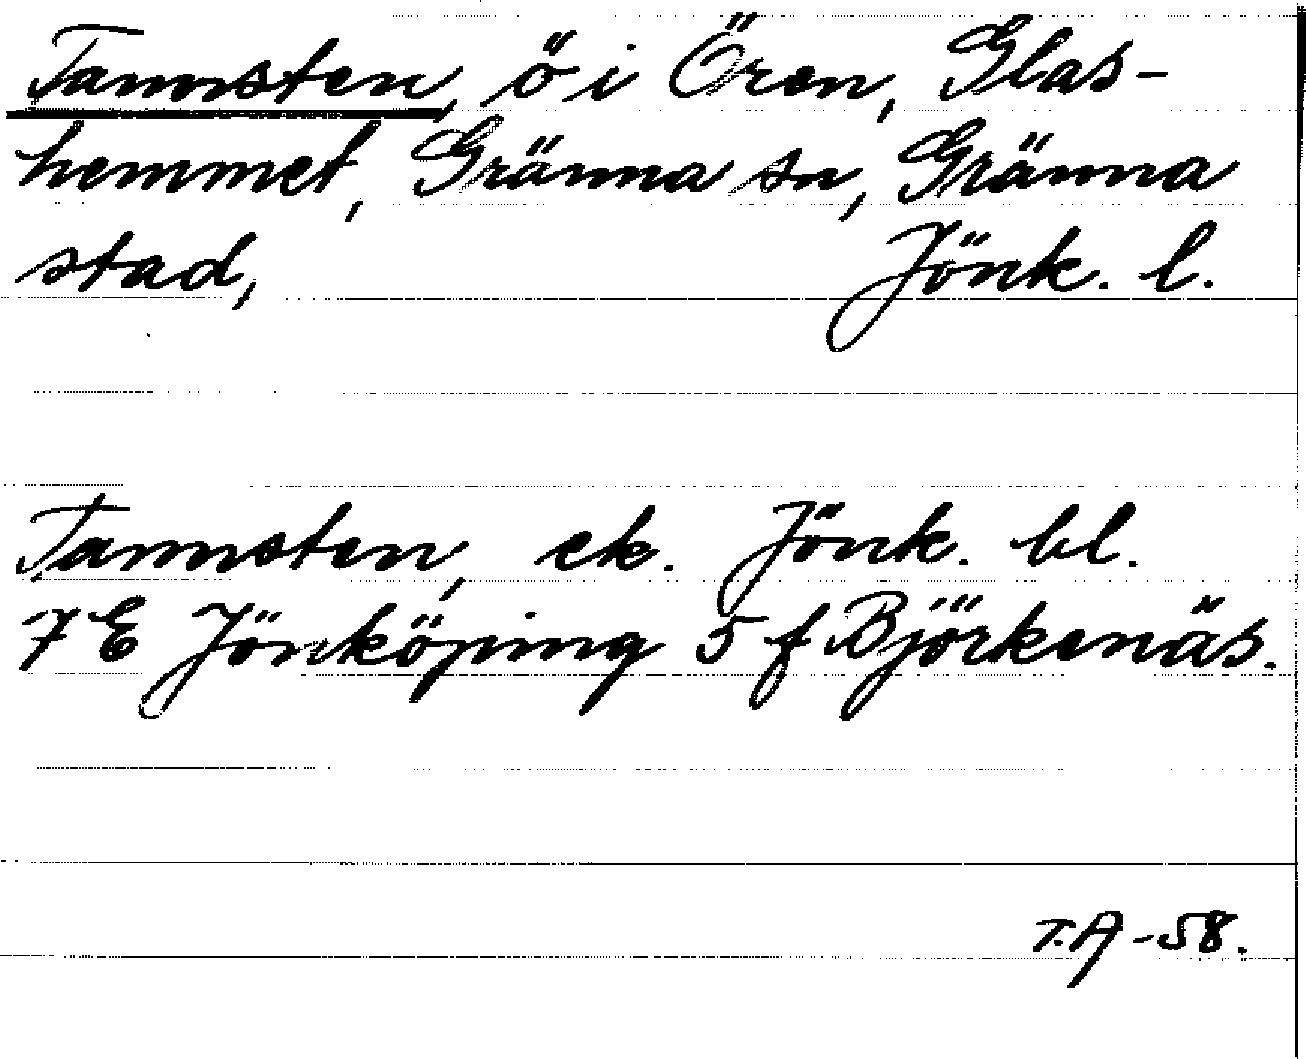 Tannsten, ö i Ören, Glas-
hemmet, Gränna sn, Gränna
stad, Jönk. l.
Tannsten, ek. Jönk. bl.
7E Jönköping 5 f Björkenäs.
T.A -58.